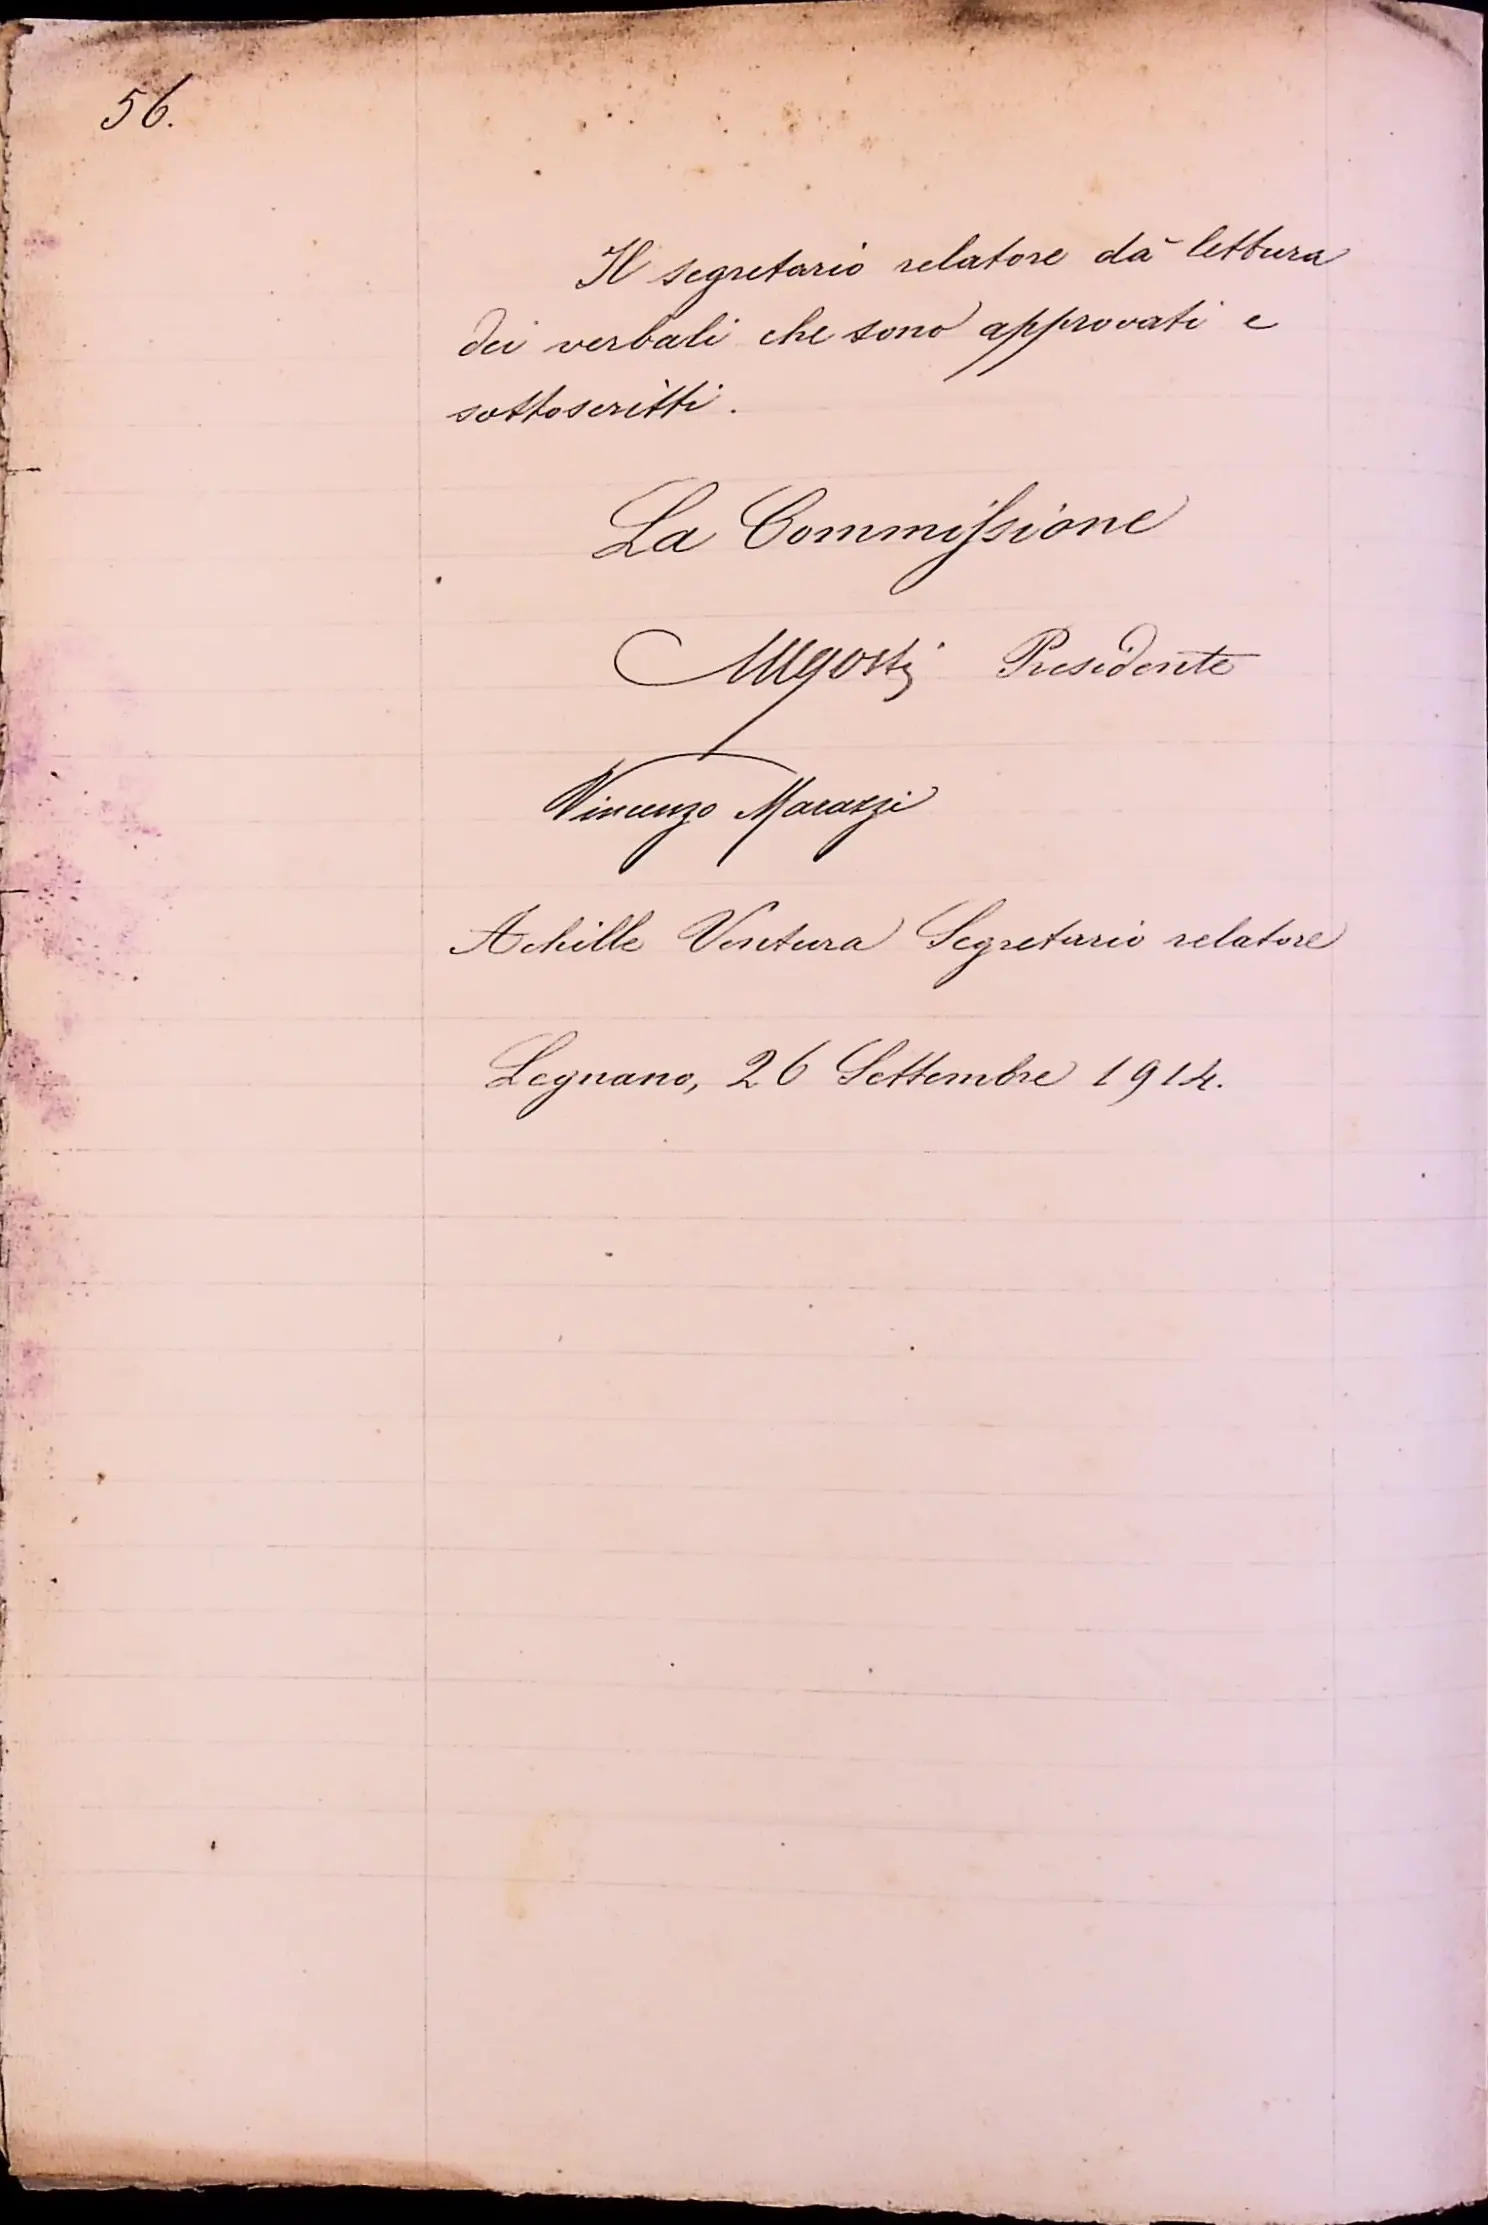 56.
Il segretario relatore dà lettura
dei verbali che sono approvati e
sottoscritti.
La Commissione
Presidente
Vincenzo Marazzi
Achille Ventura Segretario relatore
Legnano, 26 Settembre 1914.